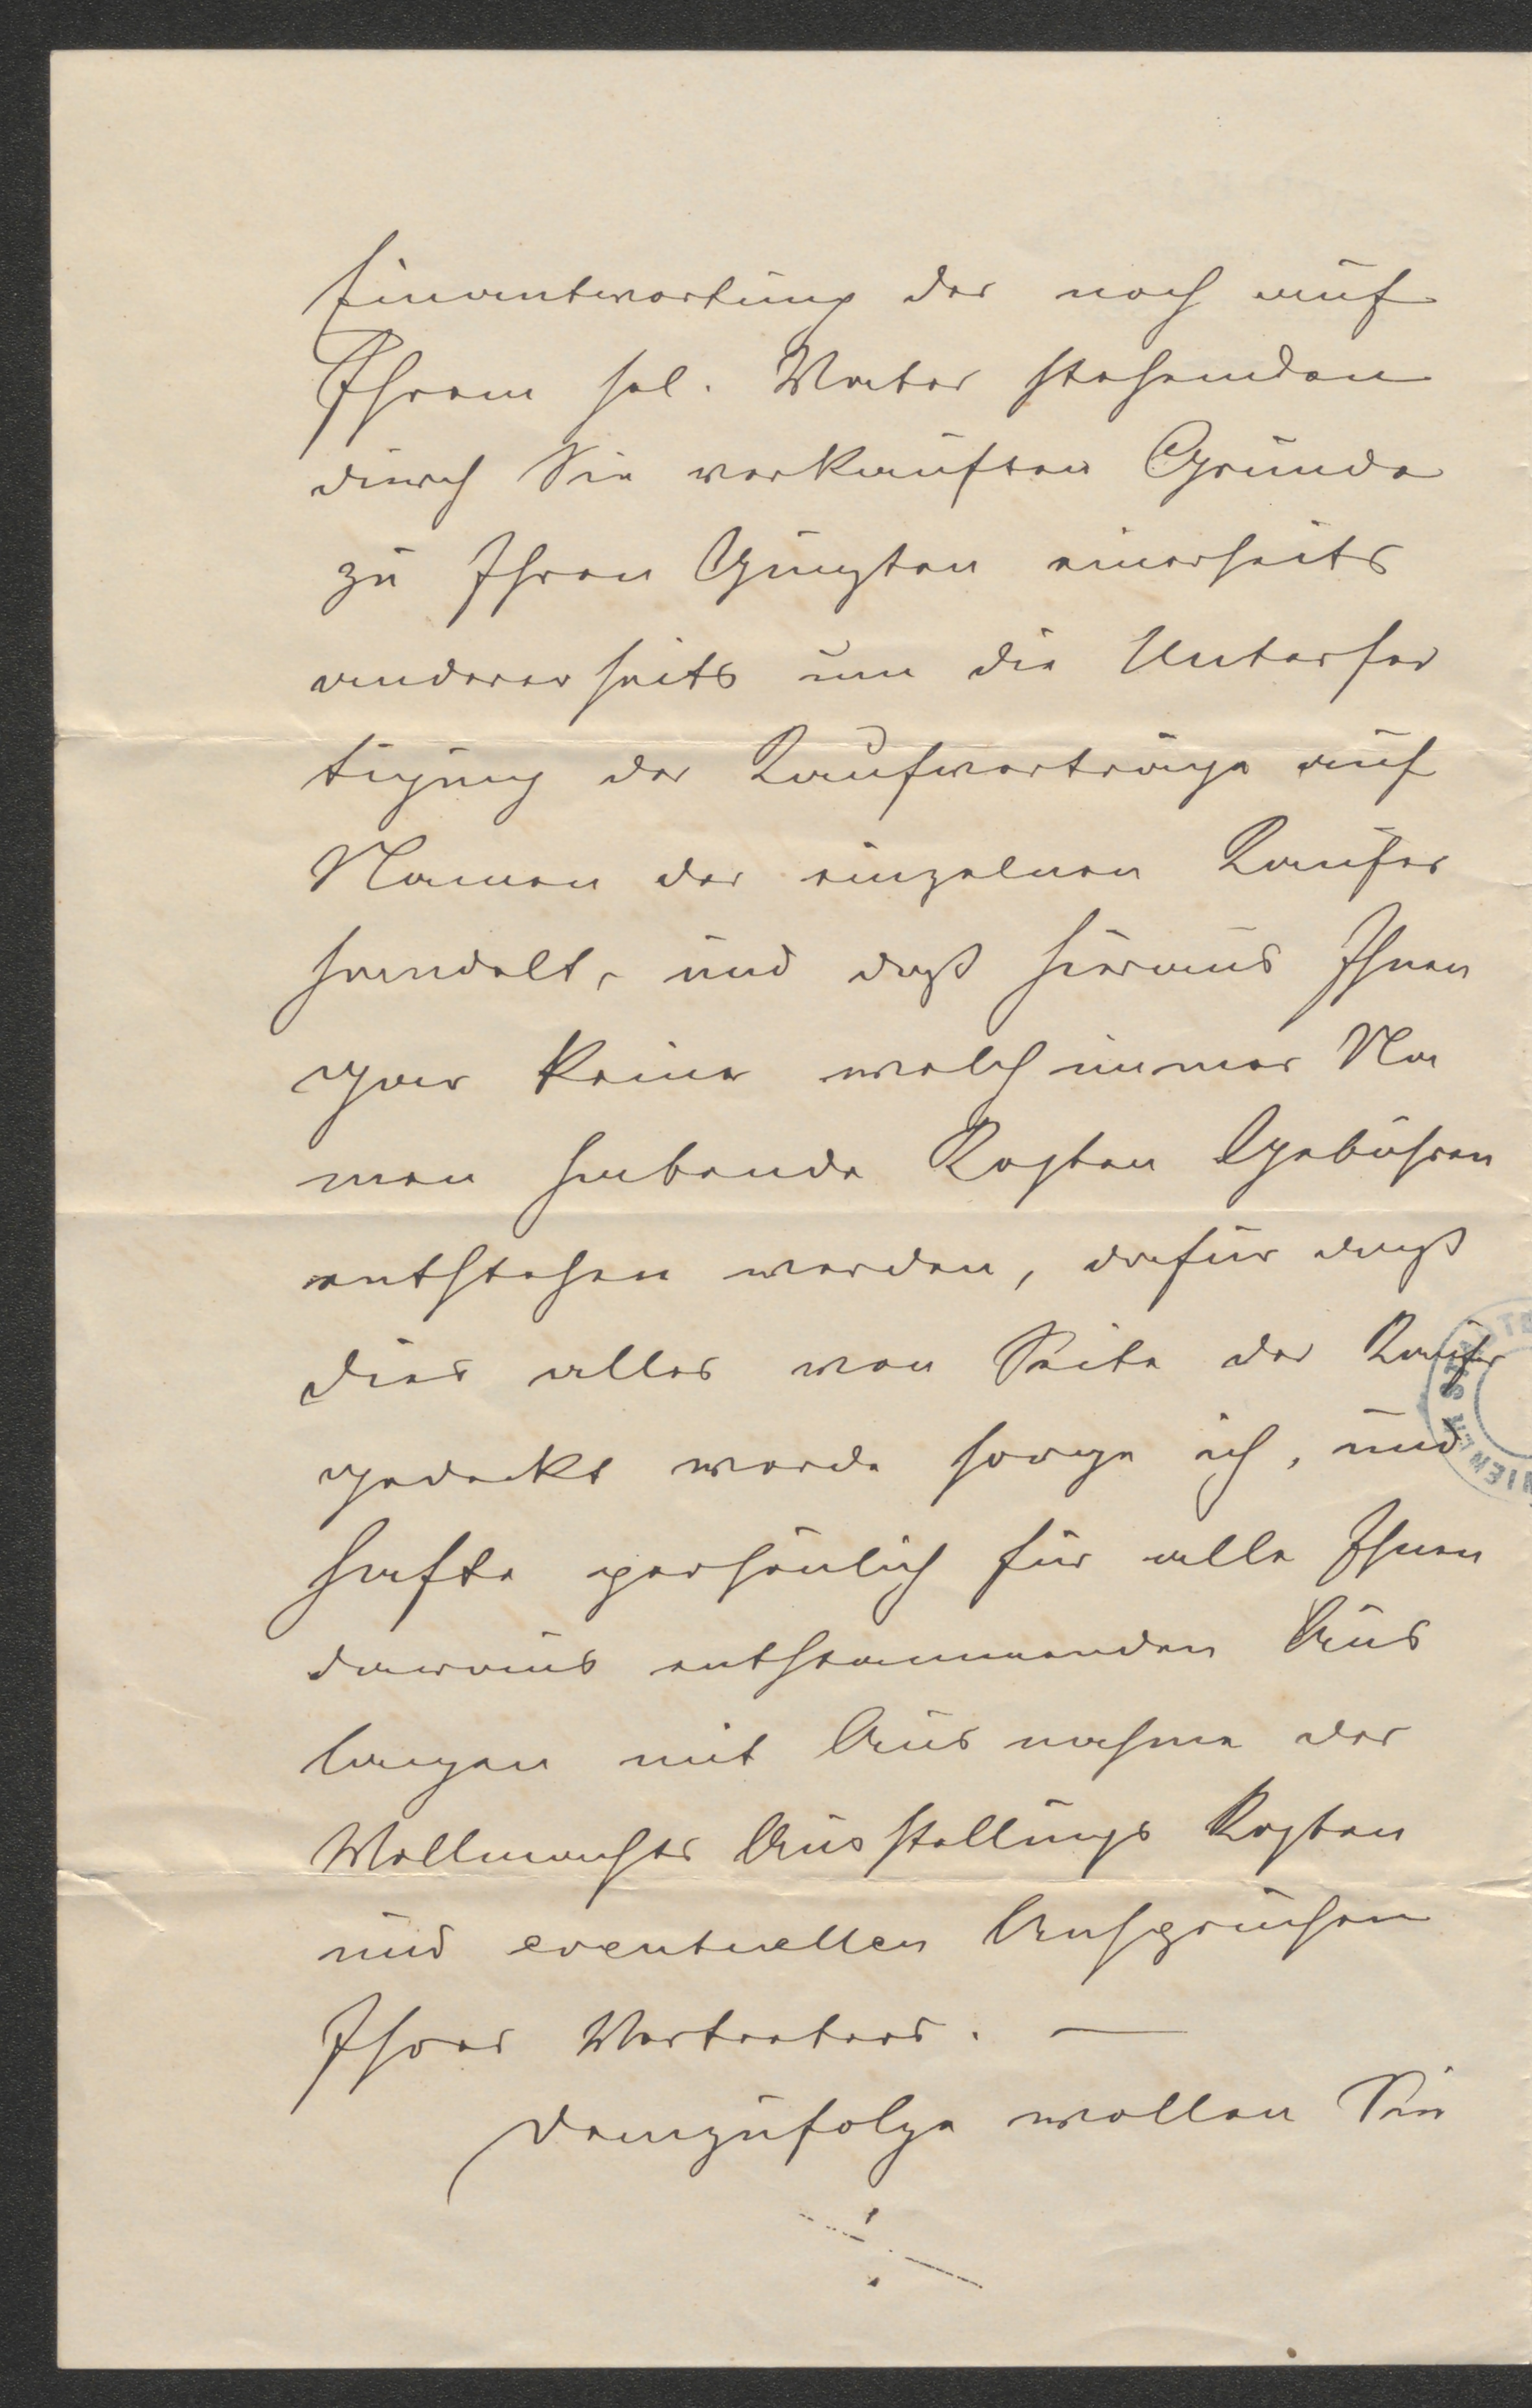 Einantwortung der noch auf
Ihrem sel. Vater stehenden
durch Sie verkauften Gründe
zu Ihren Gunsten einerseits
andererseits um die Unterfer
tigung der Kaufverträge auf
Namen der einzelnen Käufer
handelt, und daß hieraus Ihnen
gar keine welch immer Na
men habende Kosten Gebühren
entstehen werden, dafür daß
dies alles von Seite der Käufer
gedeckt werde sorge ich, und
hafte persönlich für alle Ihnen
daraus entstammenden Aus
lagen mit Ausnahme der
Vollmachts Ausstellungs Kosten
und eventuellen Ansprüchen
Ihres Vertreters. —
Demzufolge wollen Sie